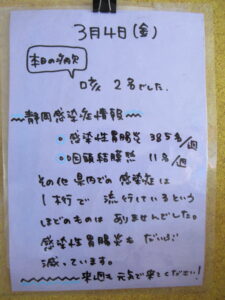 3月4日(金)
本日の病欠
咳 2名でした.
静岡感染症情報
・感染性胃腸炎 385名/週
・咽頭結膜熱 11名/週
その他 県内での感染症は
流行しているという
ほどのものは ありませんでした。
感染性胃腸炎も だいぶ
減っています。
来週も元気で来てください!